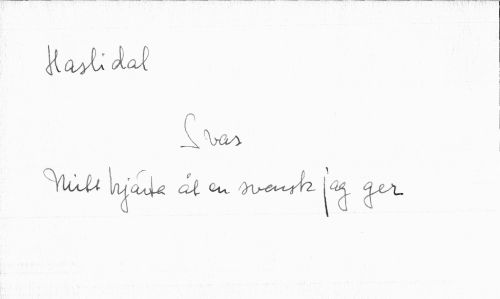 Haslidal
Svas
Mitt hjärta åt en svensk jag ger